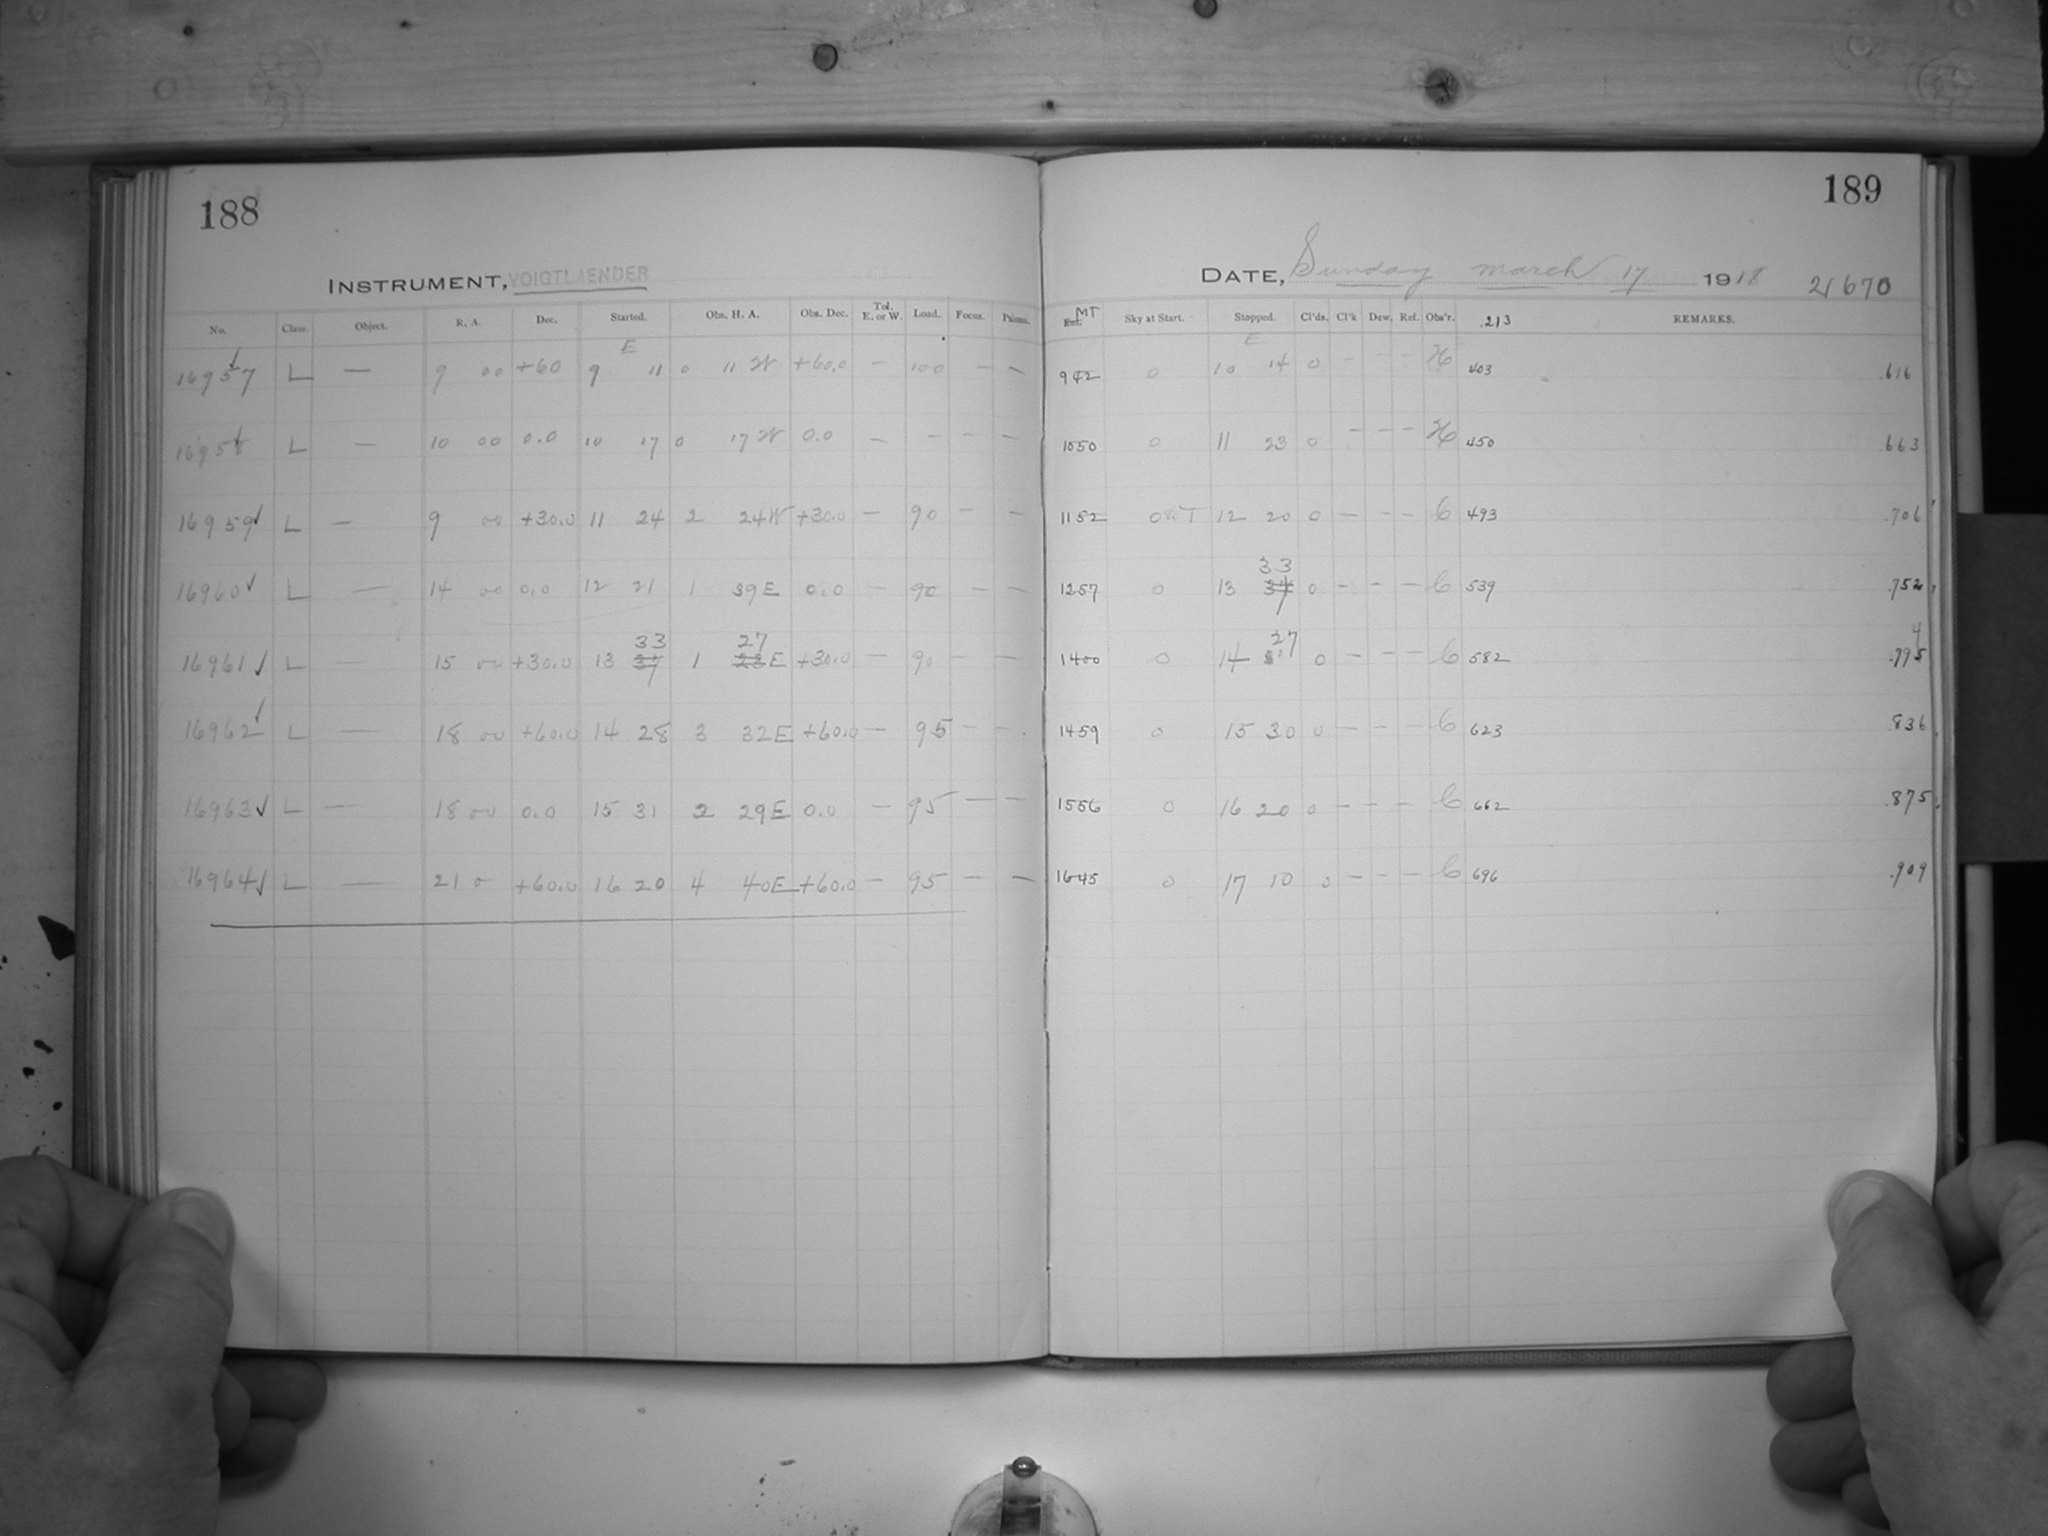 188
INSTRUMENT, VOIGTLAENDER
No. Class. Object. R. A. Dec. Started. Obs. H. A. Obs. Dec. Tel. E. or W. Load. Focus. Prisms.
16957 L — 9 00 +60 9 E 11 0 11 W +60.0 — 100 — —
16958 L — 10 00 0.0 10 17 0 17 W 0.0 — — — —
16959 L — 9 00 +30.0 11 24 2 24 W +30.0 — 90 — —
16960 L — 14 00 0.0 12 21 1 39 E 0.0 — 90 — —
16961 L — 15 00 +30.0 13 33 1 27 E +30.0 — 90 — —
16962 L — 18 00 +60.0 14 28 3 32 E +60.0 — 95 — —
16963 L — 18 00 0.0 15 31 2 29 E 0.0 — 95 — —
16964 L — 21 0 +60.0 16 20 4 40 E +60.0 — 95 — —
189
DATE, Sunday March 17 1918 21670
MT Sky at Start. Stopped. Cl'ds. Cl'k Dew. Ref. Obs'r. .213 REMARKS.
942 0 10 E 14 0 — — — H 403 .616
1050 0 11 23 0 — — — H 450 .663
1152 0 12 20 0 — — — C 493 .706
1257 0 13 33 0 — — — C 539 .752
1400 0 14 27 0 — — — C 582 .795 4
1459 0 15 30 0 — — — C 623 .836
1556 0 16 20 0 — — — C 662 .875
1645 0 17 10 0 — — — C 696 .909